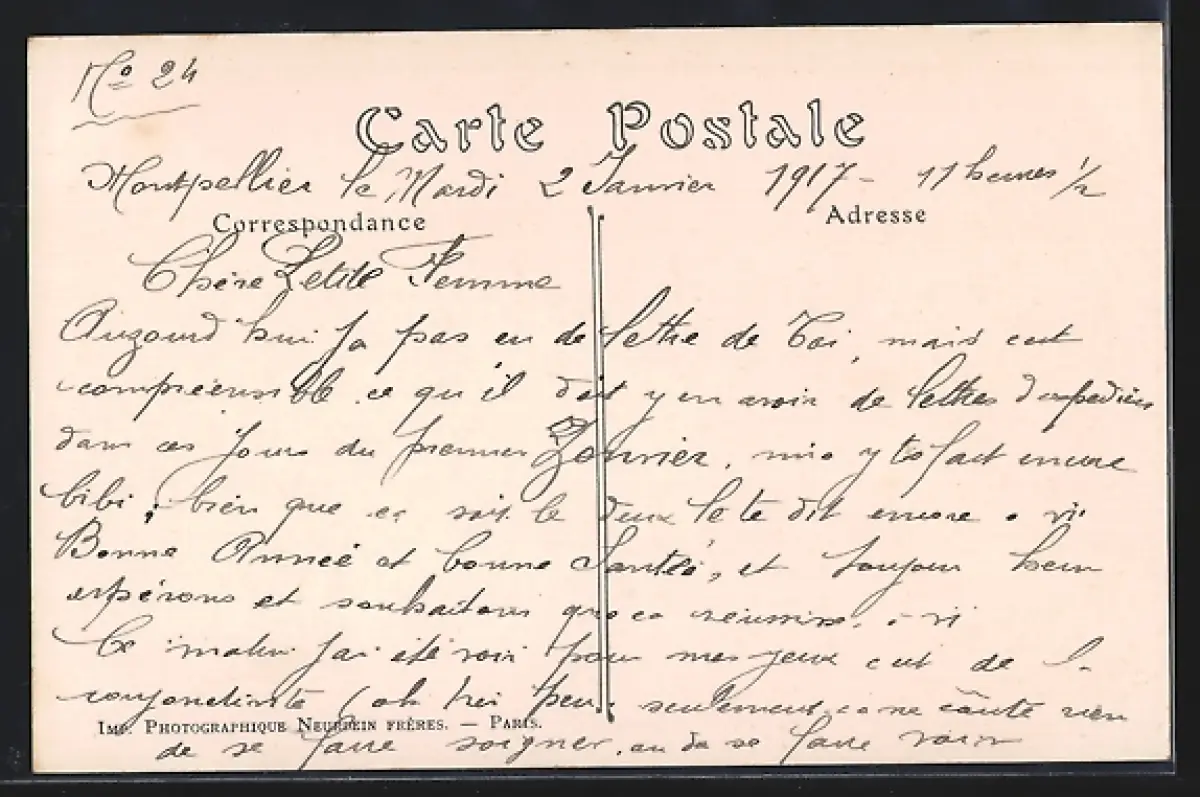 No 24
Carte Postale
Montpellier le Mardi 2 Janvier 1917 - 11 heures 1/2
Correspondance
Adresse
Chère Petite Femme
Aujourd'hui j'a pas eu de lettre de Toi, mais cest
compréensible ce qu'il doit y en avoir de lettres d'expedier
dans ces jours du premier Janvier, y te fait encore
bibi, bien que ce soit le deux le te dit encore
Bonne Année et bonne Santée, et toujour
espérons et souhaitons que ca
Ce matin j'ai été voir pour mes yeux cest de l
conjonctivite (oh très peu, seulement ca ne coute rien
Imp. Photographique Neurdein frères. — Paris.
de se faire soigner, ou de se faire voir